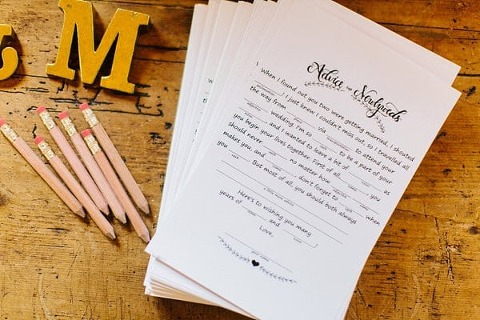 M
Advice for Newlyweds
When I found out you two were getting married, I shouted
! I just knew I couldn't miss out, so I travelled all
the way from via to attend your
wedding. I'm so to be a part of your
and I wanted to leave a bit of as
you begin your lives together. First of all, , you
should never when
makes you and , no matter how
you , don't forget to
But most of all, you should both always
Here's to wishing you many
years of and
Love,